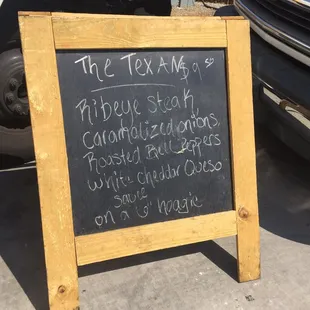 The TexAN $9.50
Ribeye steak
Caramalized onions,
Roasted Bell Peppers
white cheddar Queso
sauce
on a 6" hoagie